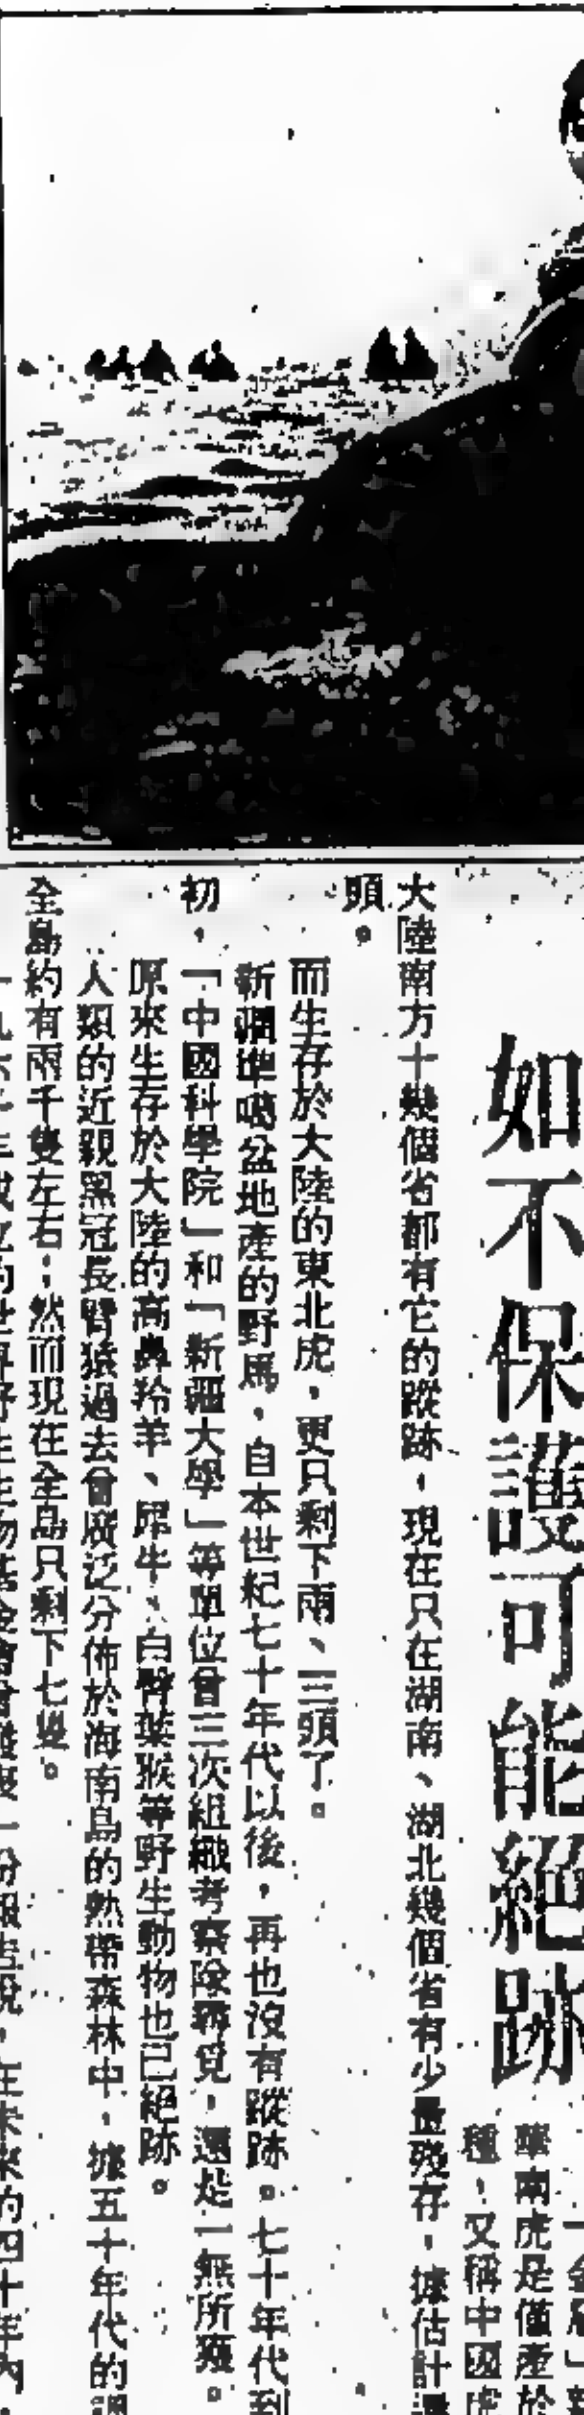 如不保護可能絕跡
華南虎是僅產於
種,又稱中國虎
大陸南方十幾個省都有它的蹤跡,現在只在湖南、湖北幾個省有少量殘存,據估計還
頭。
而生存於大陸的東北虎,更只剩下兩、三頭了。
新疆準噶盆地產的野馬,自本世紀七十年代以後,再也沒有蹤跡。七十年代到
初,「中國科學院」和「新疆大學」等單位曾三次組織考察隊尋覓,還是一無所獲。
原來生存於大陸的高鼻羚羊、犀牛、白臀葉猴等野生動物也已絕跡。
人類的近親黑冠長臂猿過去曾廣泛分佈於海南島的熱帶森林中,據五十年代的調
全島約有兩千隻左右;然而現在全島只剩下七隻。
年成立的世界野生生物基金會曾發表一份報告說,在未來的四十年內,